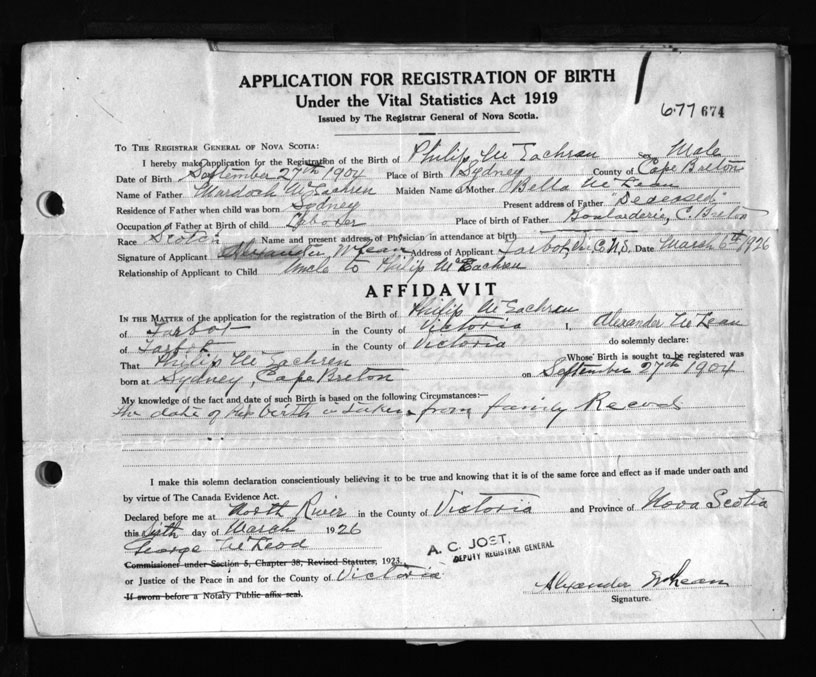 APPLICATION FOR REGISTRATION OF BIRTH
Under the Vital Statistics Act 1919
Issued by The Registrar General of Nova Scotia.
677 674
To The Registrar General of Nova Scotia:
I hereby make application for the Registration of the Birth of Philip McEachren Male
Date of Birth September 27th 1904 Place of Birth Sydney County of Cape Breton
Name of Father Murdoch McEachren Maiden Name of Mother Bella McLean
Residence of Father when child was born Sydney Present address of Father Deceased
Occupation of Father at Birth of child Laborer Place of Birth of Father Boularderie, C. Breton
Race Scotch Name and present address of Physician in attendance at birth
Signature of Applicant Alexander McLean Address of Applicant Tarbot, Vic. C. N.S. Date March 6th 1926
Relationship of Applicant to Child Uncle to Philip McEachren
AFFIDAVIT
In the Matter of the application for the registration of the Birth of Philip McEachren
of Tarbot in the County of Victoria I, Alexander McLean
of Tarbot in the County of Victoria do solemnly declare:
That Philip McEachren Whose Birth is sought to be registered was
born at Sydney, Cape Breton on September 27th 1904
My knowledge of the fact and date of such Birth is based on the following Circumstances:—
The date of his birth is taken from family Record
I make this solemn declaration conscientiously believing it to be true and knowing that it is of the same force and effect as if made under oath and
by virtue of The Canada Evidence Act.
Declared before me at North River in the County of Victoria and Province of Nova Scotia
this Sixth day of March 1926
George McLeod
A. C. JOST,
DEPUTY REGISTRAR GENERAL
Commissioner under Section 5, Chapter 38, Revised Statutes, 1923.
or Justice of the Peace in and for the County of Victoria
If sworn before a Notary Public affix seal.
Alexander McLean
Signature.